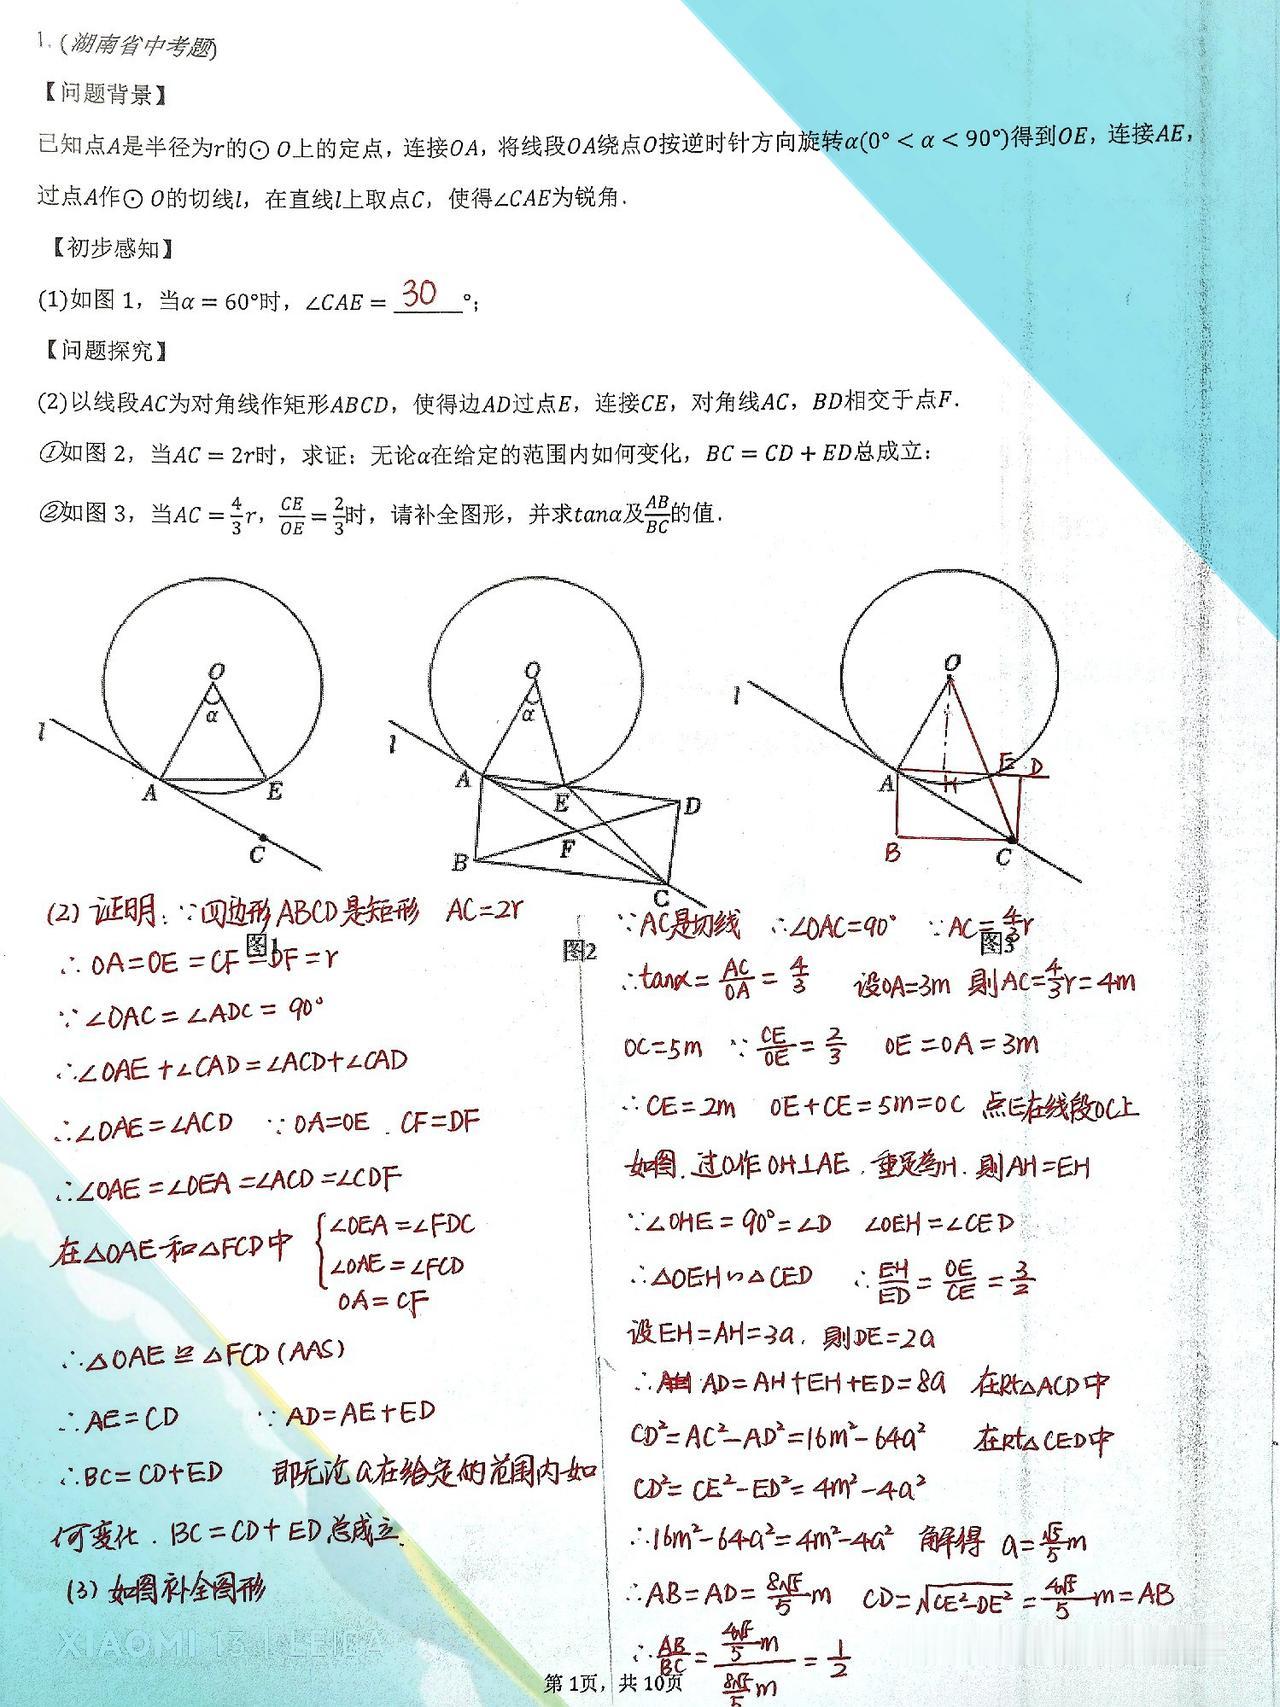 1. (湖南省中考题)
【问题背景】
已知点A是半径为r的⊙O上的定点，连接OA，将线段OA绕点O按逆时针方向旋转α(0°<α<90°)得到OE，连接AE，
过点A作⊙O的切线l，在直线l上取点C，使得∠CAE为锐角.
【初步感知】
(1)如图1，当α=60°时，∠CAE= 30 °；
【问题探究】
(2)以线段AC为对角线作矩形ABCD，使得边AD过点E，连接CE，对角线AC，BD相交于点F.
①如图2，当AC=2r时，求证：无论α在给定的范围内如何变化，BC=CD+ED总成立：
②如图3，当AC=4/3r，CE/OE=2/3时，请补全图形，并求tanα及AB/BC的值.
O
α
l
A
E
C
图1
O
α
l
A
E
D
B
F
C
图2
O
l
A
E
D
H
B
C
图3
(2) 证明：∵四边形ABCD是矩形 AC=2r
∴OA=OE=CF=DF=r
∵∠OAC=∠ADC=90°
∴∠OAE+∠CAD=∠ACD+∠CAD
∴∠OAE=∠ACD ∵OA=OE . CF=DF
∴∠OAE=∠OEA=∠ACD=∠CDF
在△OAE和△FCD中
{∠OEA=∠FDC
∠OAE=∠FCD
OA=CF
∴△OAE≌△FCD(AAS)
∴AE=CD ∵AD=AE+ED
∴BC=CD+ED 即无论α在给定的范围内如
何变化．BC=CD+ED总成立.
(3) 如图补全图形
∵AC是切线 ∴∠OAC=90° ∵AC=4/3r
∴tanα=AC/OA=4/3 设OA=3m 则AC=4/3r=4m
OC=5m ∵CE/OE=2/3 OE=OA=3m
∴CE=2m OE+CE=5m=OC 点E在线段OC上
如图．过O作OH⊥AE．垂足为H．则AH=EH
∵∠OHE=90°=∠D ∠OEH=∠CED
∴△OEH∽△CED ∴EH/ED=OE/CE=3/2
设EH=AH=3a．则DE=2a
∴AD=AH+EH+ED=8a 在Rt△ACD中
CD²=AC²-AD²=16m²-64a² 在Rt△CED中
CD²=CE²-ED²=4m²-4a²
∴16m²-64a²=4m²-4a² 解得 a=√5/5m
∴AB=AD=8√5/5m CD=√(CE²-DE²)=4√5/5m=AB
∴AB/BC=(4√5/5m)/(8√5/5m)=1/2
第1页，共10页